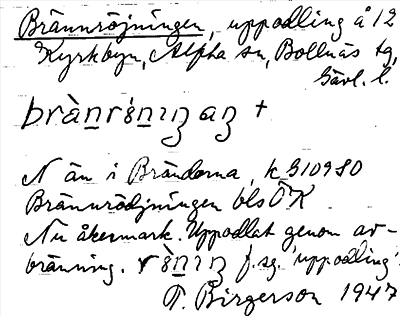 Brännröjningen, uppodling å 12
Kyrkbyn, Alfta sn, Bollnäs tg,
Gävl. l.
bràn̲rén̲ıŋaŋ +
N än i Bränderna, k 310980
Brännrödjningen bls ÖK
Nu åkermark. Uppodlat genom av-
bränning. rèn̲ıŋ f. sg. 'uppodling'
T. Birgerson 1947